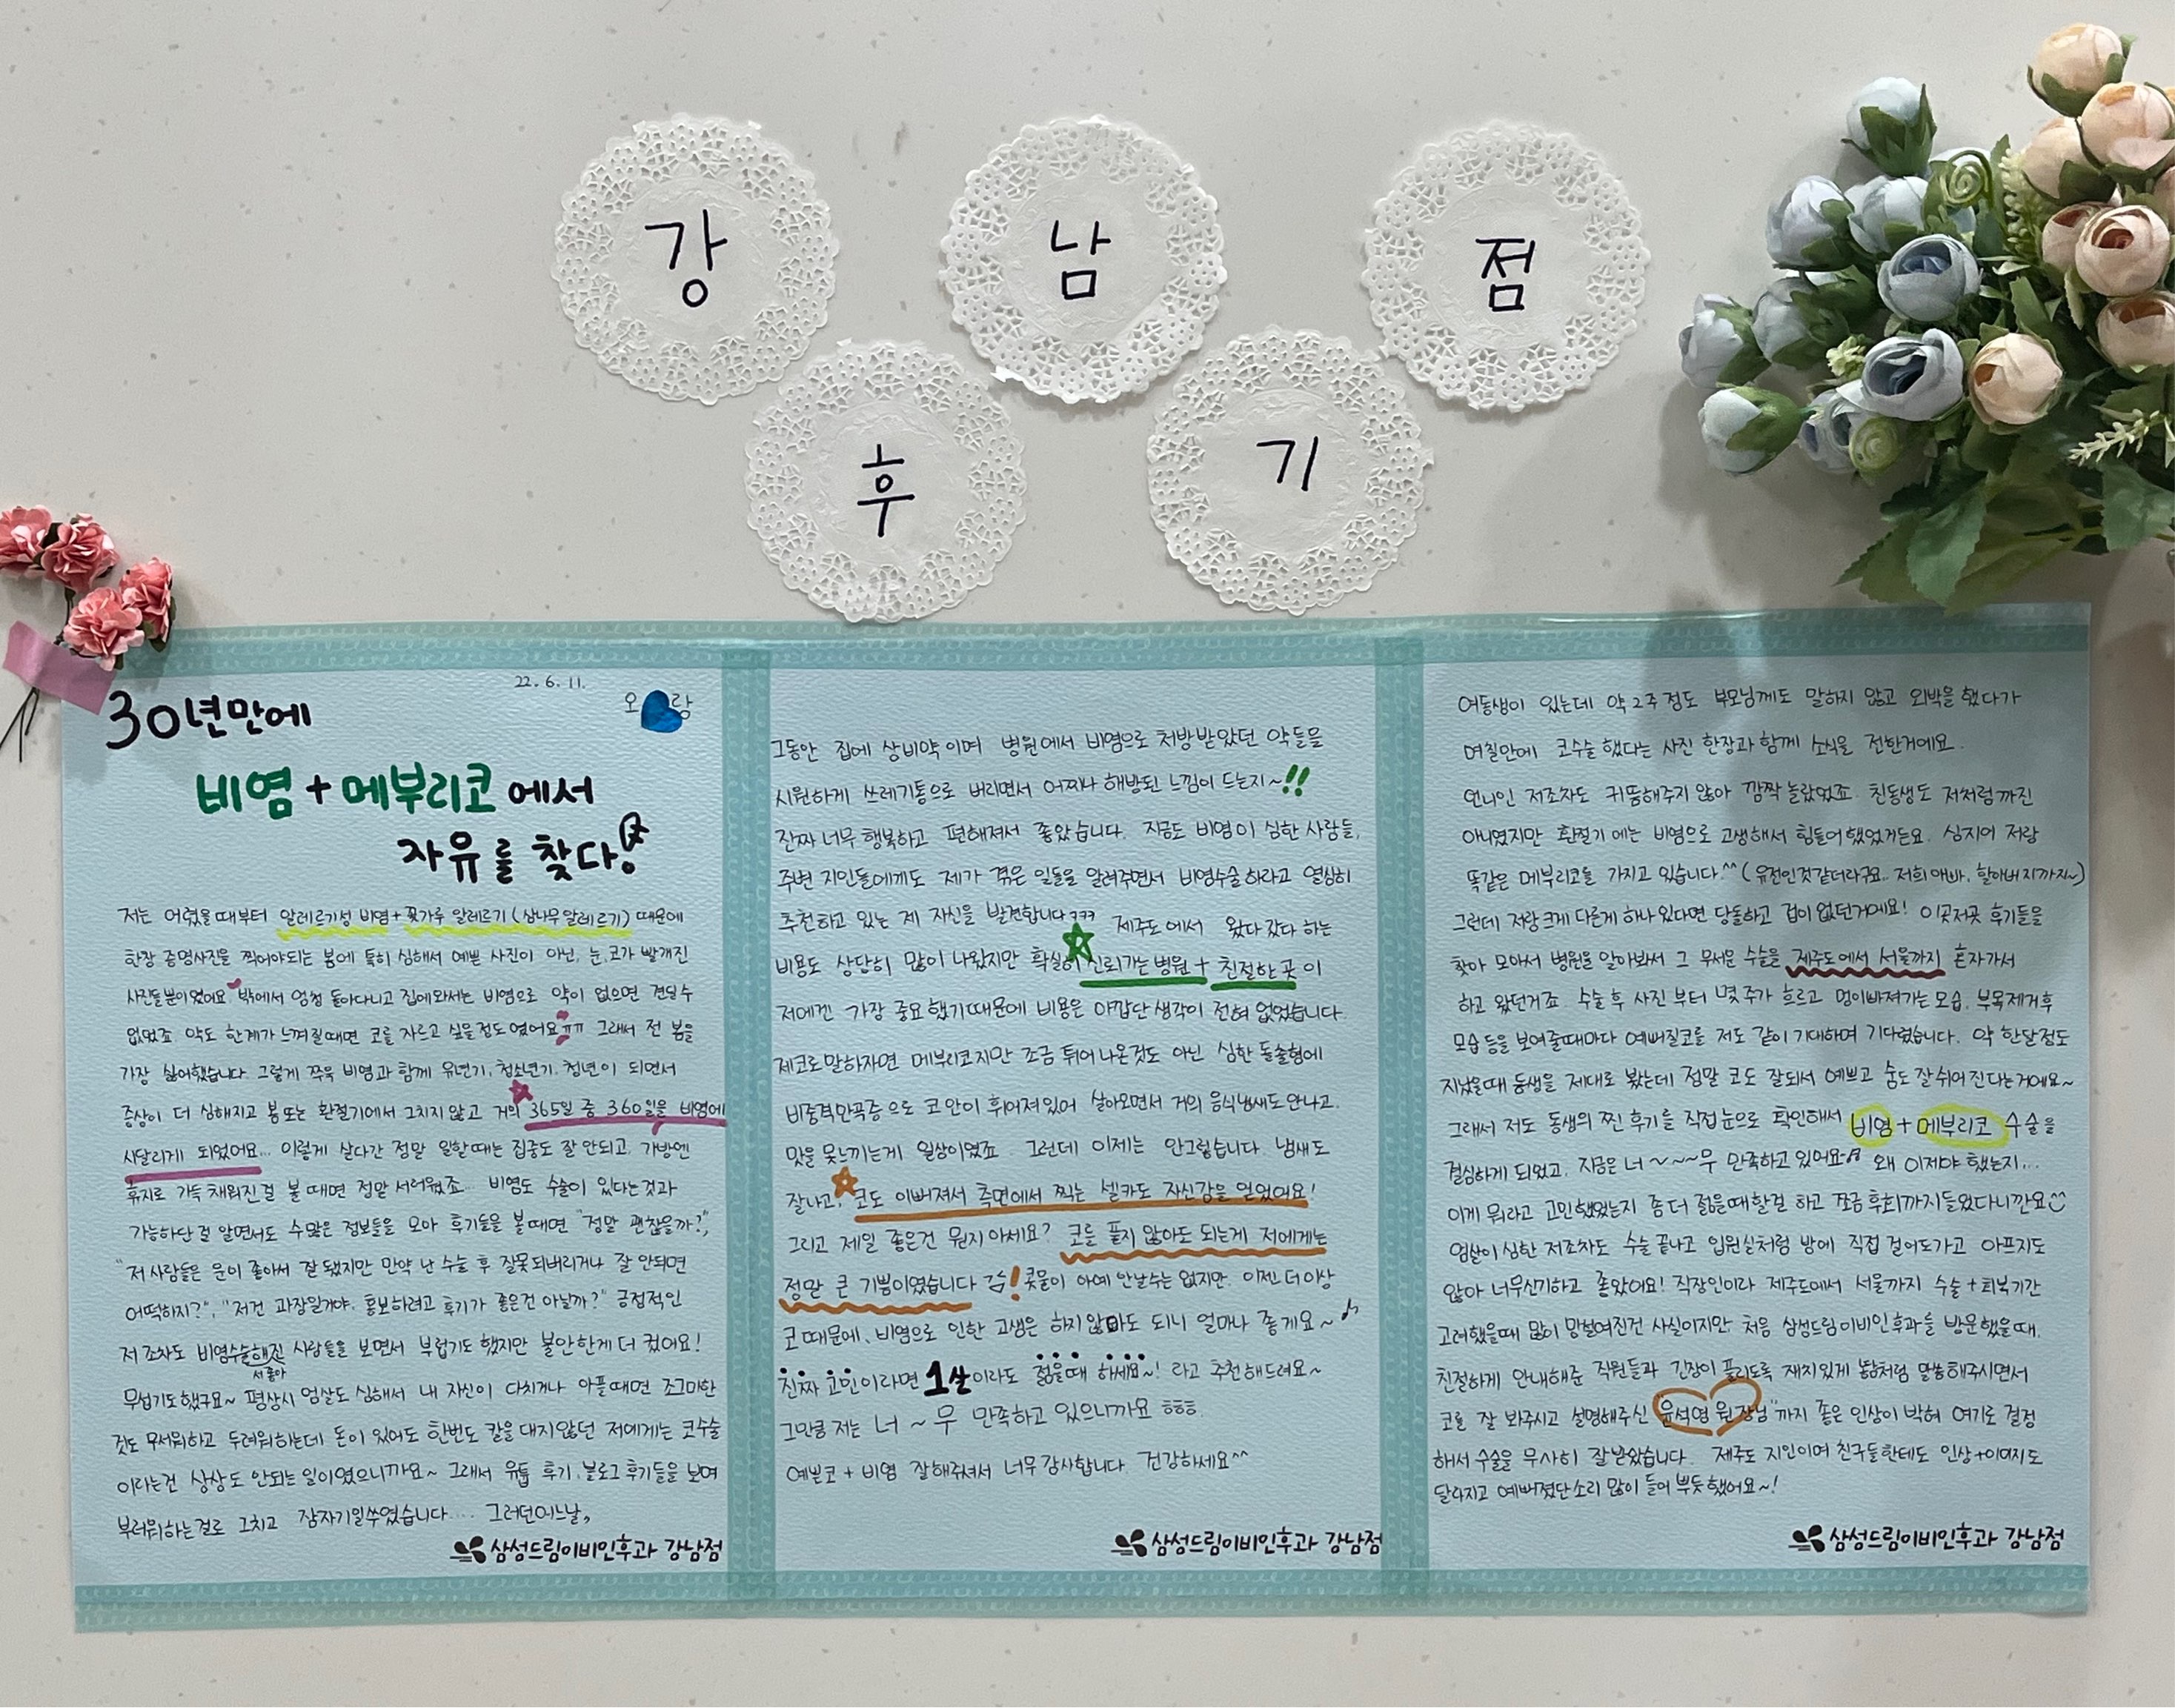 강 남 점
후 기
22. 6. 11.
오 랑
30년만에
비염 + 메부리코에서
자유를 찾다!
저는 어렸을때부터 알레르기성 비염+꽃가루 알레르기(삼나무알레르기) 때문에
한창 증명사진을 찍어야되는 봄에 특히 심해서 예쁜 사진이 아닌, 눈, 코가 빨개진
사진들뿐이였어요. 밖에서 엄청 돌아다니고 집에와서는 비염으로 약이 없으면 견딜수
없었죠 약도 한계가 느껴질때면 코를 자르고 싶을정도였어요ㅠㅠ 그래서 전 봄을
가장 싫어했습니다. 그렇게 쭈욱 비염과 함께 유년기, 청소년기, 청년이 되면서
증상이 더 심해지고 봄또는 환절기에서 그치지 않고 거의 365일 중 360일을 비염에
시달리게 되었어요... 이렇게 살다간 정말 일할때는 집중도 잘 안되고, 가방엔
휴지로 가득 채워진걸 볼때면 정말 서러웠죠... 비염도 수술이 있다는것과
가능하단걸 알면서도 수많은 정보들을 모아 후기들을 볼때면 "정말 괜찮을까?",
"저 사람들은 운이 좋아서 잘 됐지만 만약 난 수술 후 잘못되버리거나 잘 안되면
어떡하지?", "저건 과장일거야. 홍보하려고 후기가 좋은건 아닐까?" 긍정적인
저 조차도 비염수술해진 사람들을 보면서 부럽기도 했지만 불안한게 더 컸어요!
서 좋아
무섭기도했구요~ 평상시 엄살도 심해서 내 자신이 다치거나 아플때면 조그마한
것도 무서워하고 두려워하는데 돈이 있어도 한번도 칼을 대지않던 저에게는 코수술
이라는건 상상도 안되는 일이였으니까요~ 그래서 유튭 후기, 블로그 후기들을 보며
부러워하는걸로 그치고 잠자기일쑤였습니다.... 그러던어느날,
삼성드림이비인후과 강남점
그동안 집에 상비약이며 병원에서 비염으로 처방받았던 약들을
시원하게 쓰레기통으로 버리면서 어찌나 해방된 느낌이 드는지~!!
진짜 너무 행복하고 편해져서 좋았습니다. 지금도 비염이 심한 사람들,
주변 지인들에게도 제가 겪은 일들을 알려주면서 비염수술하라고 열심히
추천하고 있는 제 자신을 발견합니다ㅋㅋㅋ 제주도에서 왔다갔다 하는
비용도 상당히 많이 나왔지만 확실히 신뢰가는병원 + 친절한곳이
저에겐 가장 중요했기때문에 비용은 아깝단생각이 전혀 없었습니다.
제코로말하자면 메부리코지만 조금 튀어나온것도 아닌 심한 돌출형에
비중격만곡증으로 코안이 휘어져있어 살아오면서 거의 음식냄새도안나고,
맛을 못느끼는게 일상이였죠. 그런데 이제는 안그렇습니다. 냄새도
잘나고, 코도 이뻐져서 측면에서 찍는 셀카도 자신감을 얻었어요!
그리고 제일 좋은건 뭔지아세요? 코를 풀지 않아도 되는게 저에게는
정말 큰 기쁨이였습니다 콧물이 아예 안날수는 없지만, 이젠더이상
코때문에, 비염으로 인한 고생은 하지않아도 되니 얼마나 좋게요~♪
진짜 고민이라면 1살이라도 젊을때 하세요~! 라고 추천해드려요~
그만큼 저는 너~무 만족하고 있으니까요 ㅎㅎㅎ.
예쁜코 + 비염 잘해주셔서 너무감사합니다. 건강하세요^^
삼성드림이비인후과 강남점
여동생이 있는데 약2주정도 부모님께도 말하지 않고 외박을했다가
며칠만에 코수술했다는 사진 한장과 함께 소식을 전한거예요.
언니인 저조차도 귀뜸해주지않아 깜짝놀랐었죠. 친동생도 저처럼까진
아니였지만 환절기에는 비염으로 고생해서 힘들어했었거든요. 심지어 저랑
똑같은 메부리코를 가지고있습니다^^(유전인것같더라구요.. 저희아빠, 할아버지까지~)
그런데 저랑크게 다른게하나있다면 당돌하고 겁이없던거예요! 이곳저곳 후기들을
찾아 모아서 병원을 알아봐서 그 무서운 수술을 제주도에서 서울까지 혼자가서
하고 왔던거죠. 수술후 사진부터 몇주가 흐르고 멍이빠져가는모습, 부목제거후
모습등을 보여줄때마다 예뻐질코를 저도 같이 기대하며 기다렸습니다. 약 한달정도
지났을때 동생을 제대로 봤는데 정말 코도 잘되서 예쁘고 숨도잘쉬어진다는거에요~
그래서 저도 동생의 찐 후기를 직접눈으로 확인해서 비염+메부리코 수술을
결심하게 되었고, 지금은 너~~~무 만족하고있어요♬ 왜 이제야 했는지...
이게 뭐라고 고민했었는지 좀더 젊을때할걸 하고 쪼금후회까지들었다니깐요☺
엄살이심한 저조차도 수술 끝나고 입원실처럼 방에 직접 걸어도가고 아프지도
않아 너무신기하고 좋았어요! 직장인이라 제주도에서 서울까지 수술+회복기간
고려했을때 많이 망설여진건 사실이지만, 처음 삼성드림이비인후과를 방문했을때,
친절하게 안내해준 직원들과 긴장이 풀리도록 재치있게 농담처럼 말씀해주시면서
코를 잘 봐주시고 설명해주신 "윤석영 원장님"까지 좋은 인상이 박혀 여기로 결정
해서 수술을 무사히 잘받았습니다. 제주도 지인이며 친구들한테도 인상+이미지도
달라지고 예뻐졌단소리 많이 들어 뿌듯했어요~!
삼성드림이비인후과 강남점